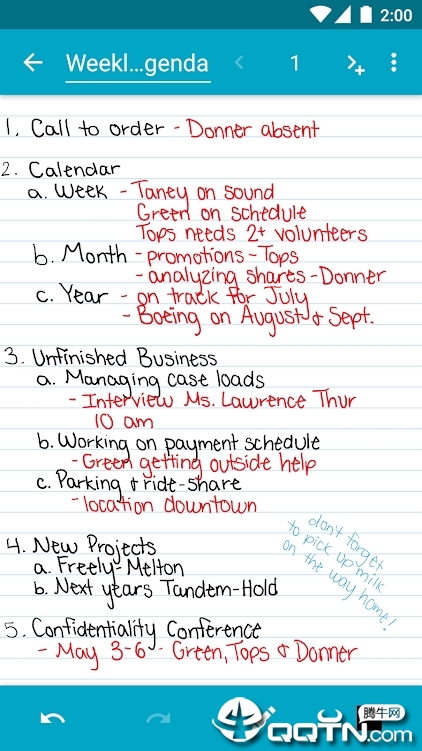 2:00
Weekl...genda
1
1. Call to order - Donner absent
2. Calendar
a. Week - Taney on sound
Green on schedule
Tops needs 2+ volunteers
b. Month - promotions - Tops
- analyzing shares - Donner
c. Year - on track for July
- Boeing on August & Sept.
3. Unfinished Business
a. Managing case loads
- Interview Ms. Lawrence Thur
10 am
b. Working on payment schedule
- Green getting outside help
c. Parking & ride-share
- location downtown
don't forget
to pick up milk
on the way home!
4. New Projects
a. Freely-Melton
b. Next years Tandem-Hold
5. Confidentiality Conference
- May 3-6 - Green, Tops & Donner
腾牛网
QQTN.com